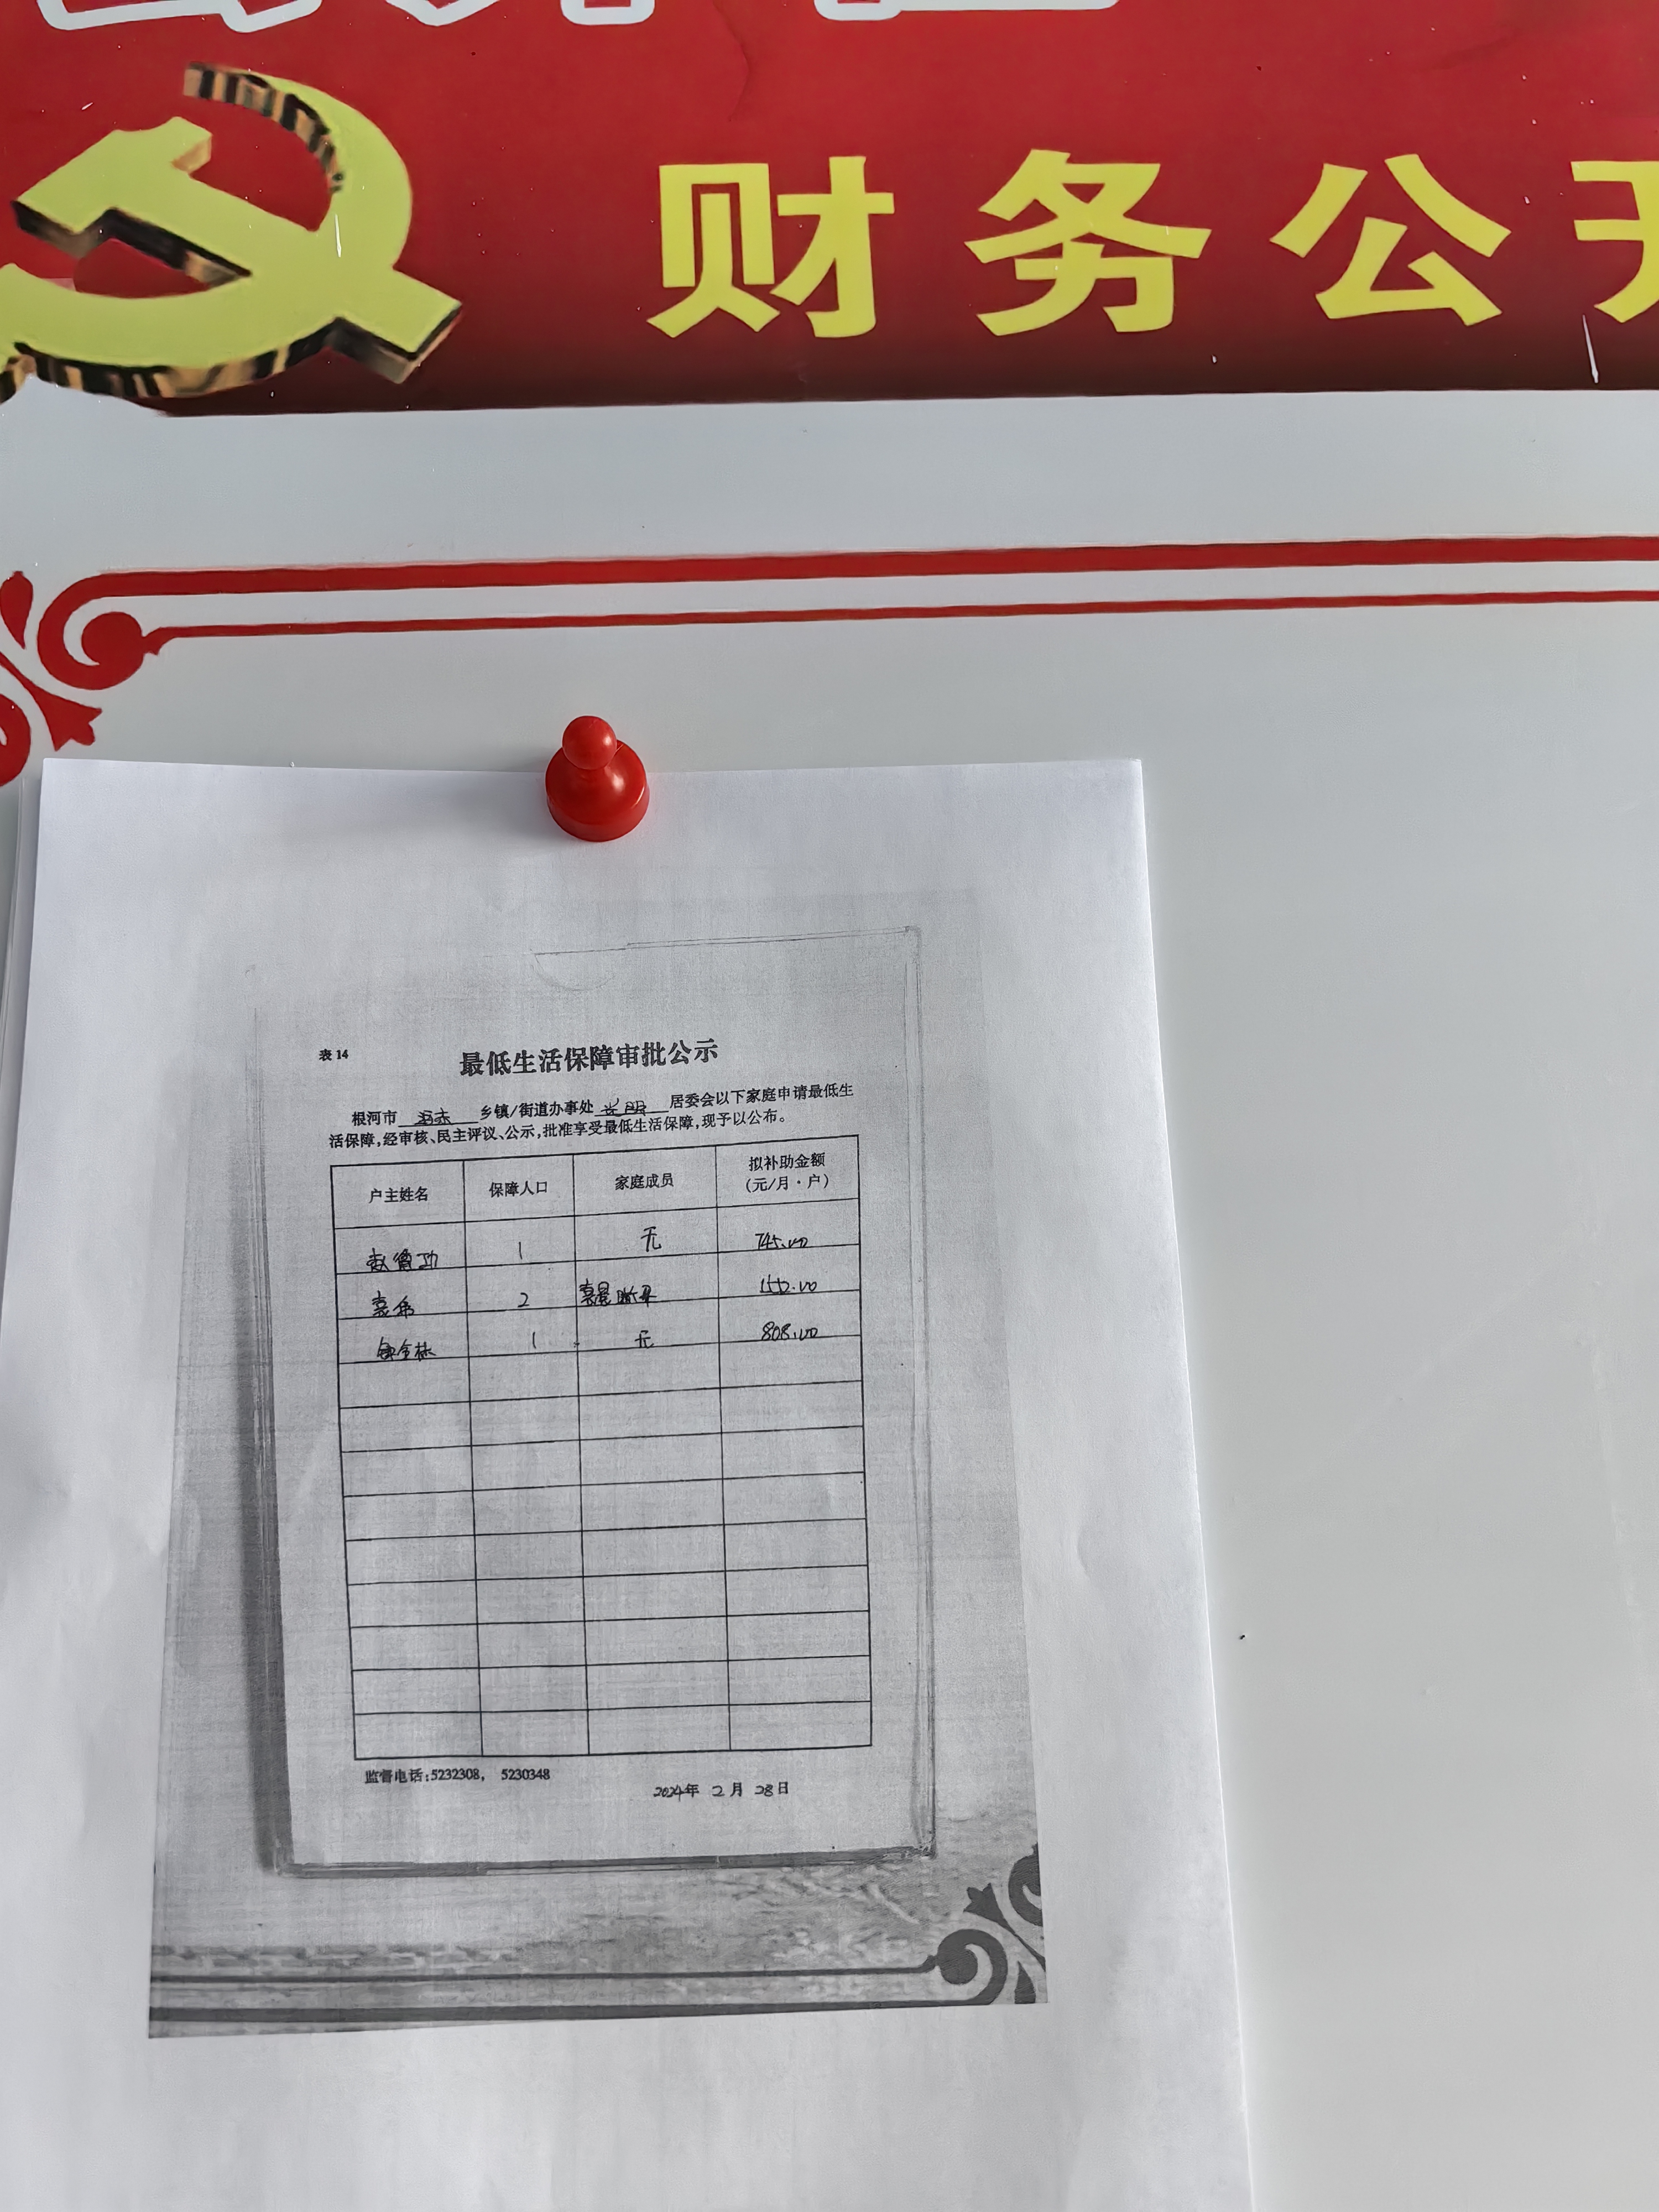 财务公开
表 14
最低生活保障审批公示
根河市 乡镇/街道办事处 居委会以下家庭申请最低生
活保障,经审核、民主评议、公示,批准享受最低生活保障,现予以公布。
户主姓名 保障人口 家庭成员 拟补助金额
(元/月·户)
1 无 745.00
2
1 无 808.00
监督电话:5232308, 5230348
2024年 2月 28日